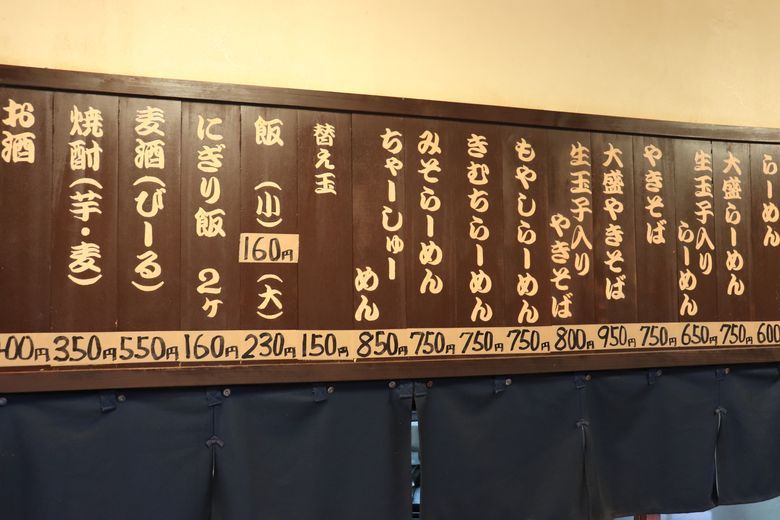 らーめん
600
大盛らーめん
750円
生玉子入り
らーめん
650円
やきそば
750円
大盛やきそば
950円
生玉子入り
やきそば
800円
もやしらーめん
750円
きむちらーめん
750円
みそらーめん
750円
ちゃーしゅー
めん
850円
替え玉
150円
飯 (小)
160円
(大)
230円
にぎり飯 2ヶ
160円
麦酒(びーる)
550円
焼酎(芋・麦)
350円
お酒
00円